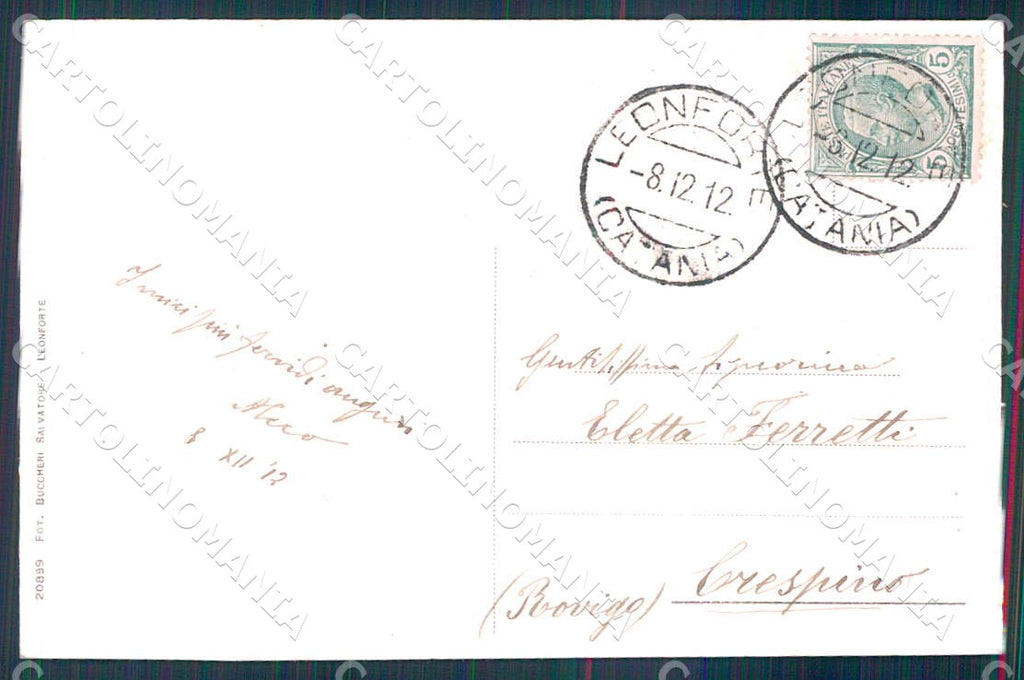 LEONFORTE
-8.12.12.
(CATANIA)
8.12.12.
(CATANIA)
5 5
CENTESIMI
I miei più fervidi auguri
8 XII '12
Gentilissima Signorina
Eletta Ferretti
Crespino
(Rovigo)
20899 FOT. BUCCHERI SALVATORE - LEONFORTE
CARTOLINOMANIA